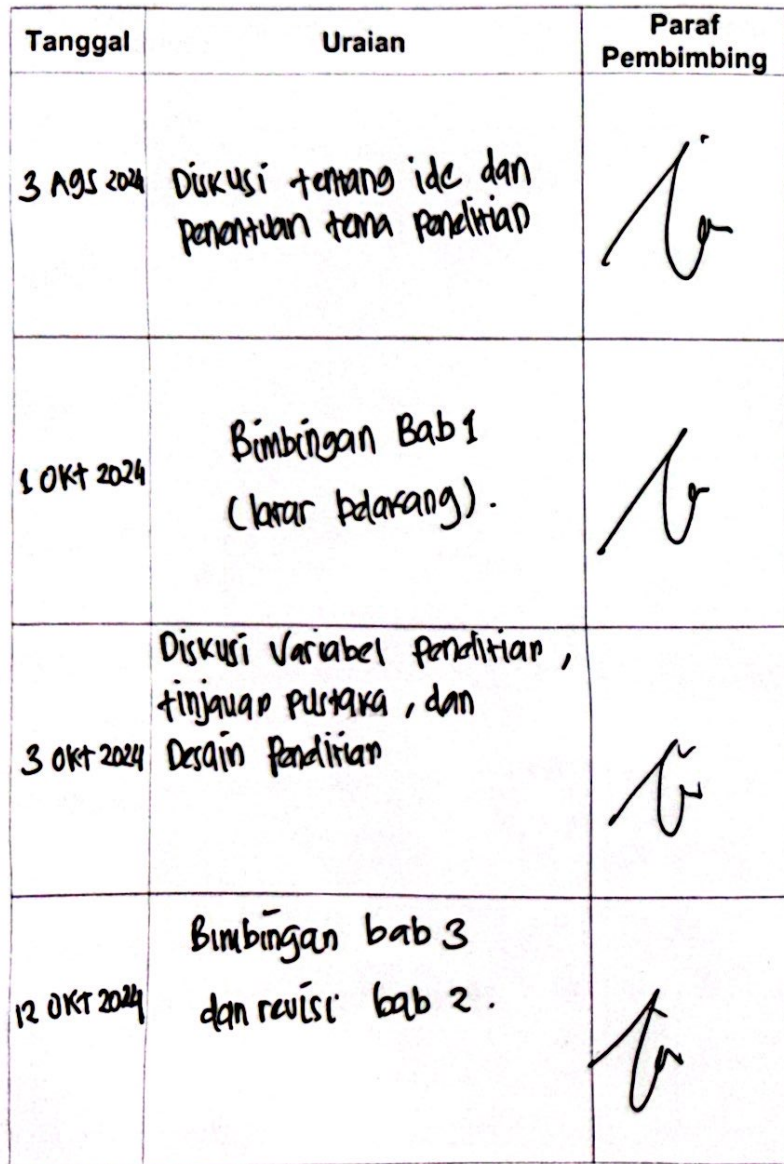 Tanggal Uraian Paraf
Pembimbing
3 Ags 2024 Diskusi tentang ide dan
penentuan tema penelitian
1 Okt 2024 Bimbingan Bab 1
(latar belakang).
Diskusi Variabel Penelitian,
tinjauan pustaka, dan
3 Okt 2024 Desain Penelitian
Bimbingan bab 3
12 Okt 2024 dan revisi bab 2.